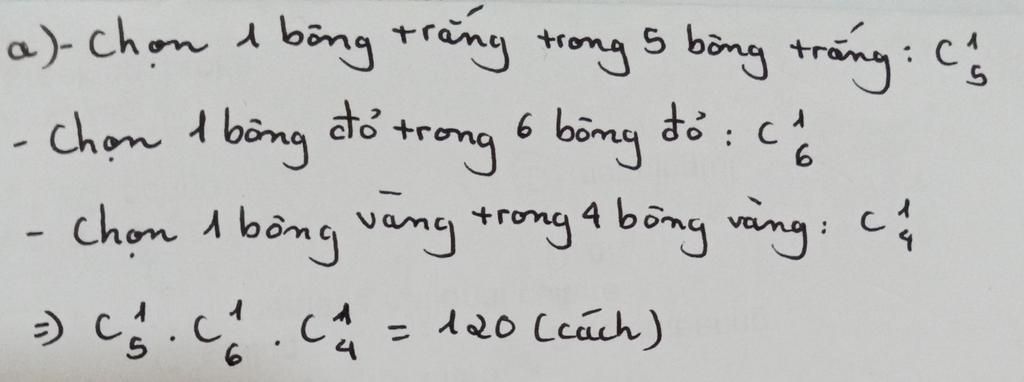 a) - Chọn 1 bông trắng trong 5 bông trắng: C¹₅
- Chọn 1 bông đỏ trong 6 bông đỏ: C¹₆
- Chọn 1 bông vàng trong 4 bông vàng: C¹₄
⇒ C¹₅ . C¹₆ . C¹₄ = 120 (cách)